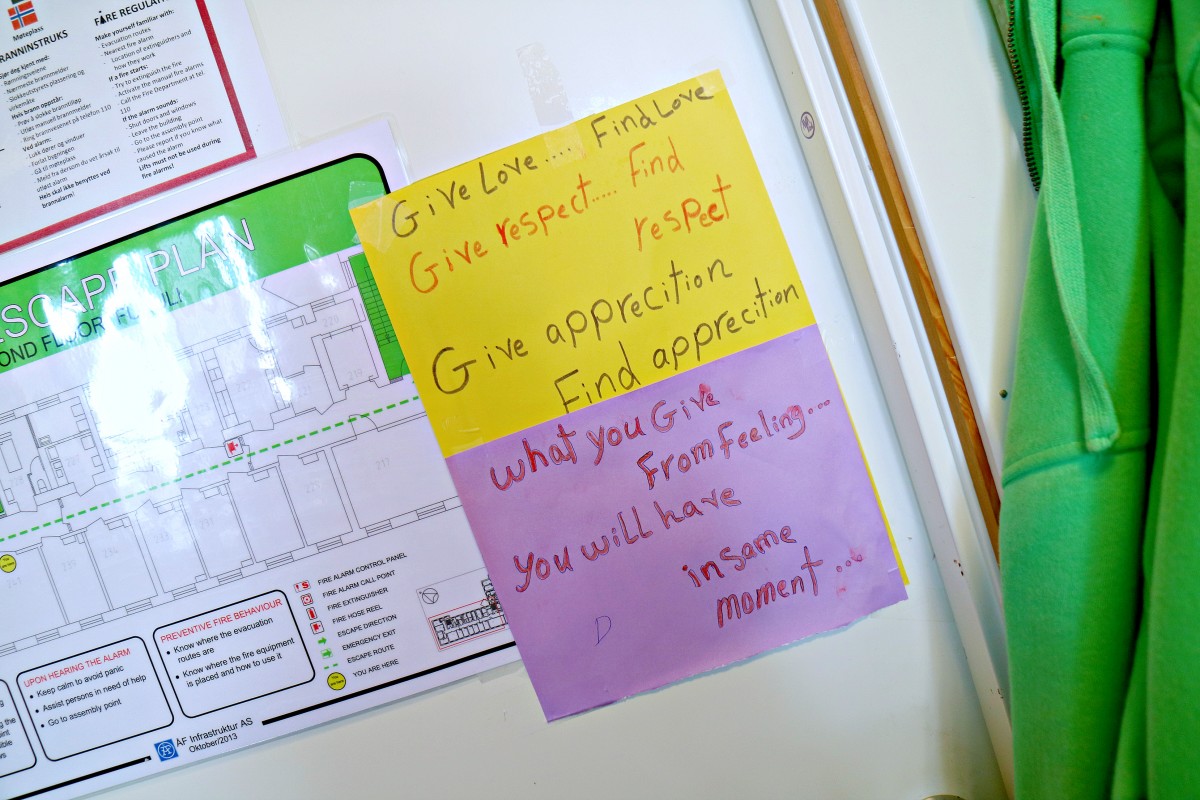 Møteplass
RANNINSTRUKS
Gjør deg kjent med:
- Rømningsveiene
- Nærmeste brannmelder
- Slokkeutstyrets plassering og
virkemåte
Hvis brann oppstår:
- Prøv å slokke branntilløp
- Utløs manuell brannmelder
- Ring brannvesenet på telefon 110
Ved alarm:
- Lukk dører og vinduer
- Forlat bygningen
- Gå til møteplass
- Meld fra dersom du vet årsak til
utløst alarm
Heis skal ikke benyttes ved
brannalarm!
FIRE REGULAT
Make yourself familiar with:
- Evacuation routes
- Nearest fire alarm
- Location of extinguishers and
how they work
If a fire starts:
- Try to extinguish the fire
- Activate the manual fire alarms
- Call the Fire Department at tel.
110
If the alarm sounds:
- Shut doors and windows
- Leave the building
- Go to the assembly point
- Please report if you know what
caused the alarm
Lifts must not be used during
fire alarms!
ESCAPE PLAN
OND FLOOR
Give Love.... Find Love
Give respect..... Find
respect
Give apprecition
Find apprecition
what you Give
From feeling...
you will have
in same
moment...
D
FIRE ALARM CONTROL PANEL
FIRE ALARM CALL POINT
FIRE EXTINGUISHER
FIRE HOSE REEL
ESCAPE DIRECTION
EMERGENCY EXIT
ESCAPE ROUTE
YOU ARE HERE
PREVENTIVE FIRE BEHAVIOUR
• Know where the evacuation
routes are
• Know where the fire equipment
is placed and how to use it
UPON HEARING THE ALARM
• Keep calm to avoid panic
• Assist persons in need of help
• Go to assembly point
ÅF Infrastruktur AS
Oktober/2013